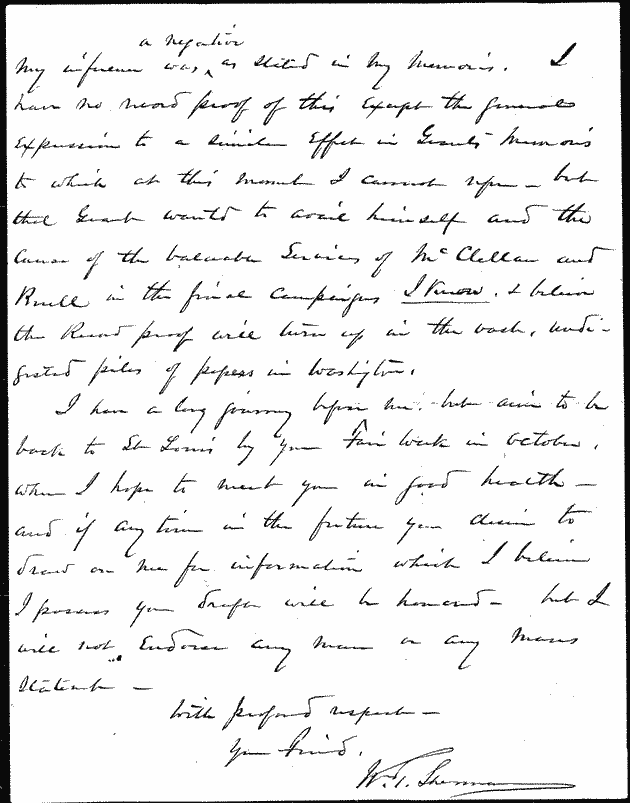 a negative
My inference was, ‸ as stated in My Memoirs. I
have no record proof of this Except the general
Expression to a similar Effect in Grants Memoirs
to which at this Moment I cannot refer – but
that Grant wanted to avail himself and the
Cause of the valuable Services of McClellan and
Buell in the final campaigns I Know. & believe
the Record proof will turn up in the vast, undi-
gested piles of papers in Washington.
I have a long journey before me, but aim to be
back to St Louis by your Fair week in October,
when I hope to meet you in good health –
and if any time in the future you desire to
draw on me for information which I believe
I possess your draft will be honored – but I
will not Endorse any man or any Mans
Statement –
With profound respect –
Your Friend,
W. T. Sherman